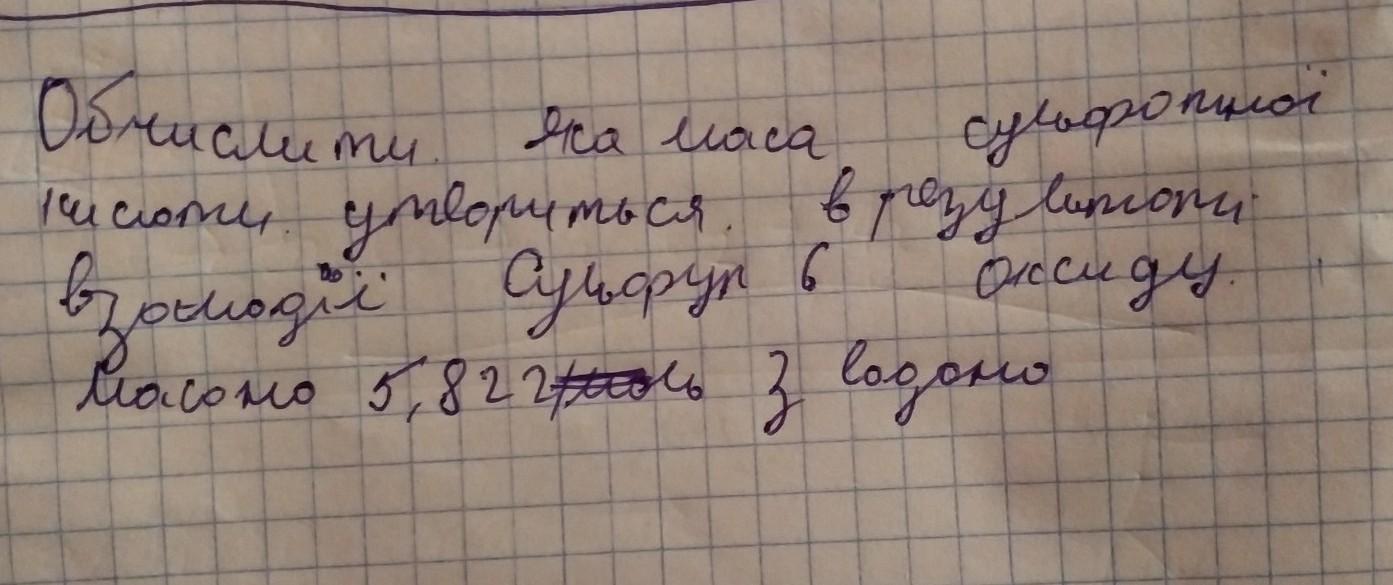 Обчислити яка маса сульфатної
кислоти утвориться в результаті
взаємодії Сульфур 6 оксиду
масою 5,82г з водою